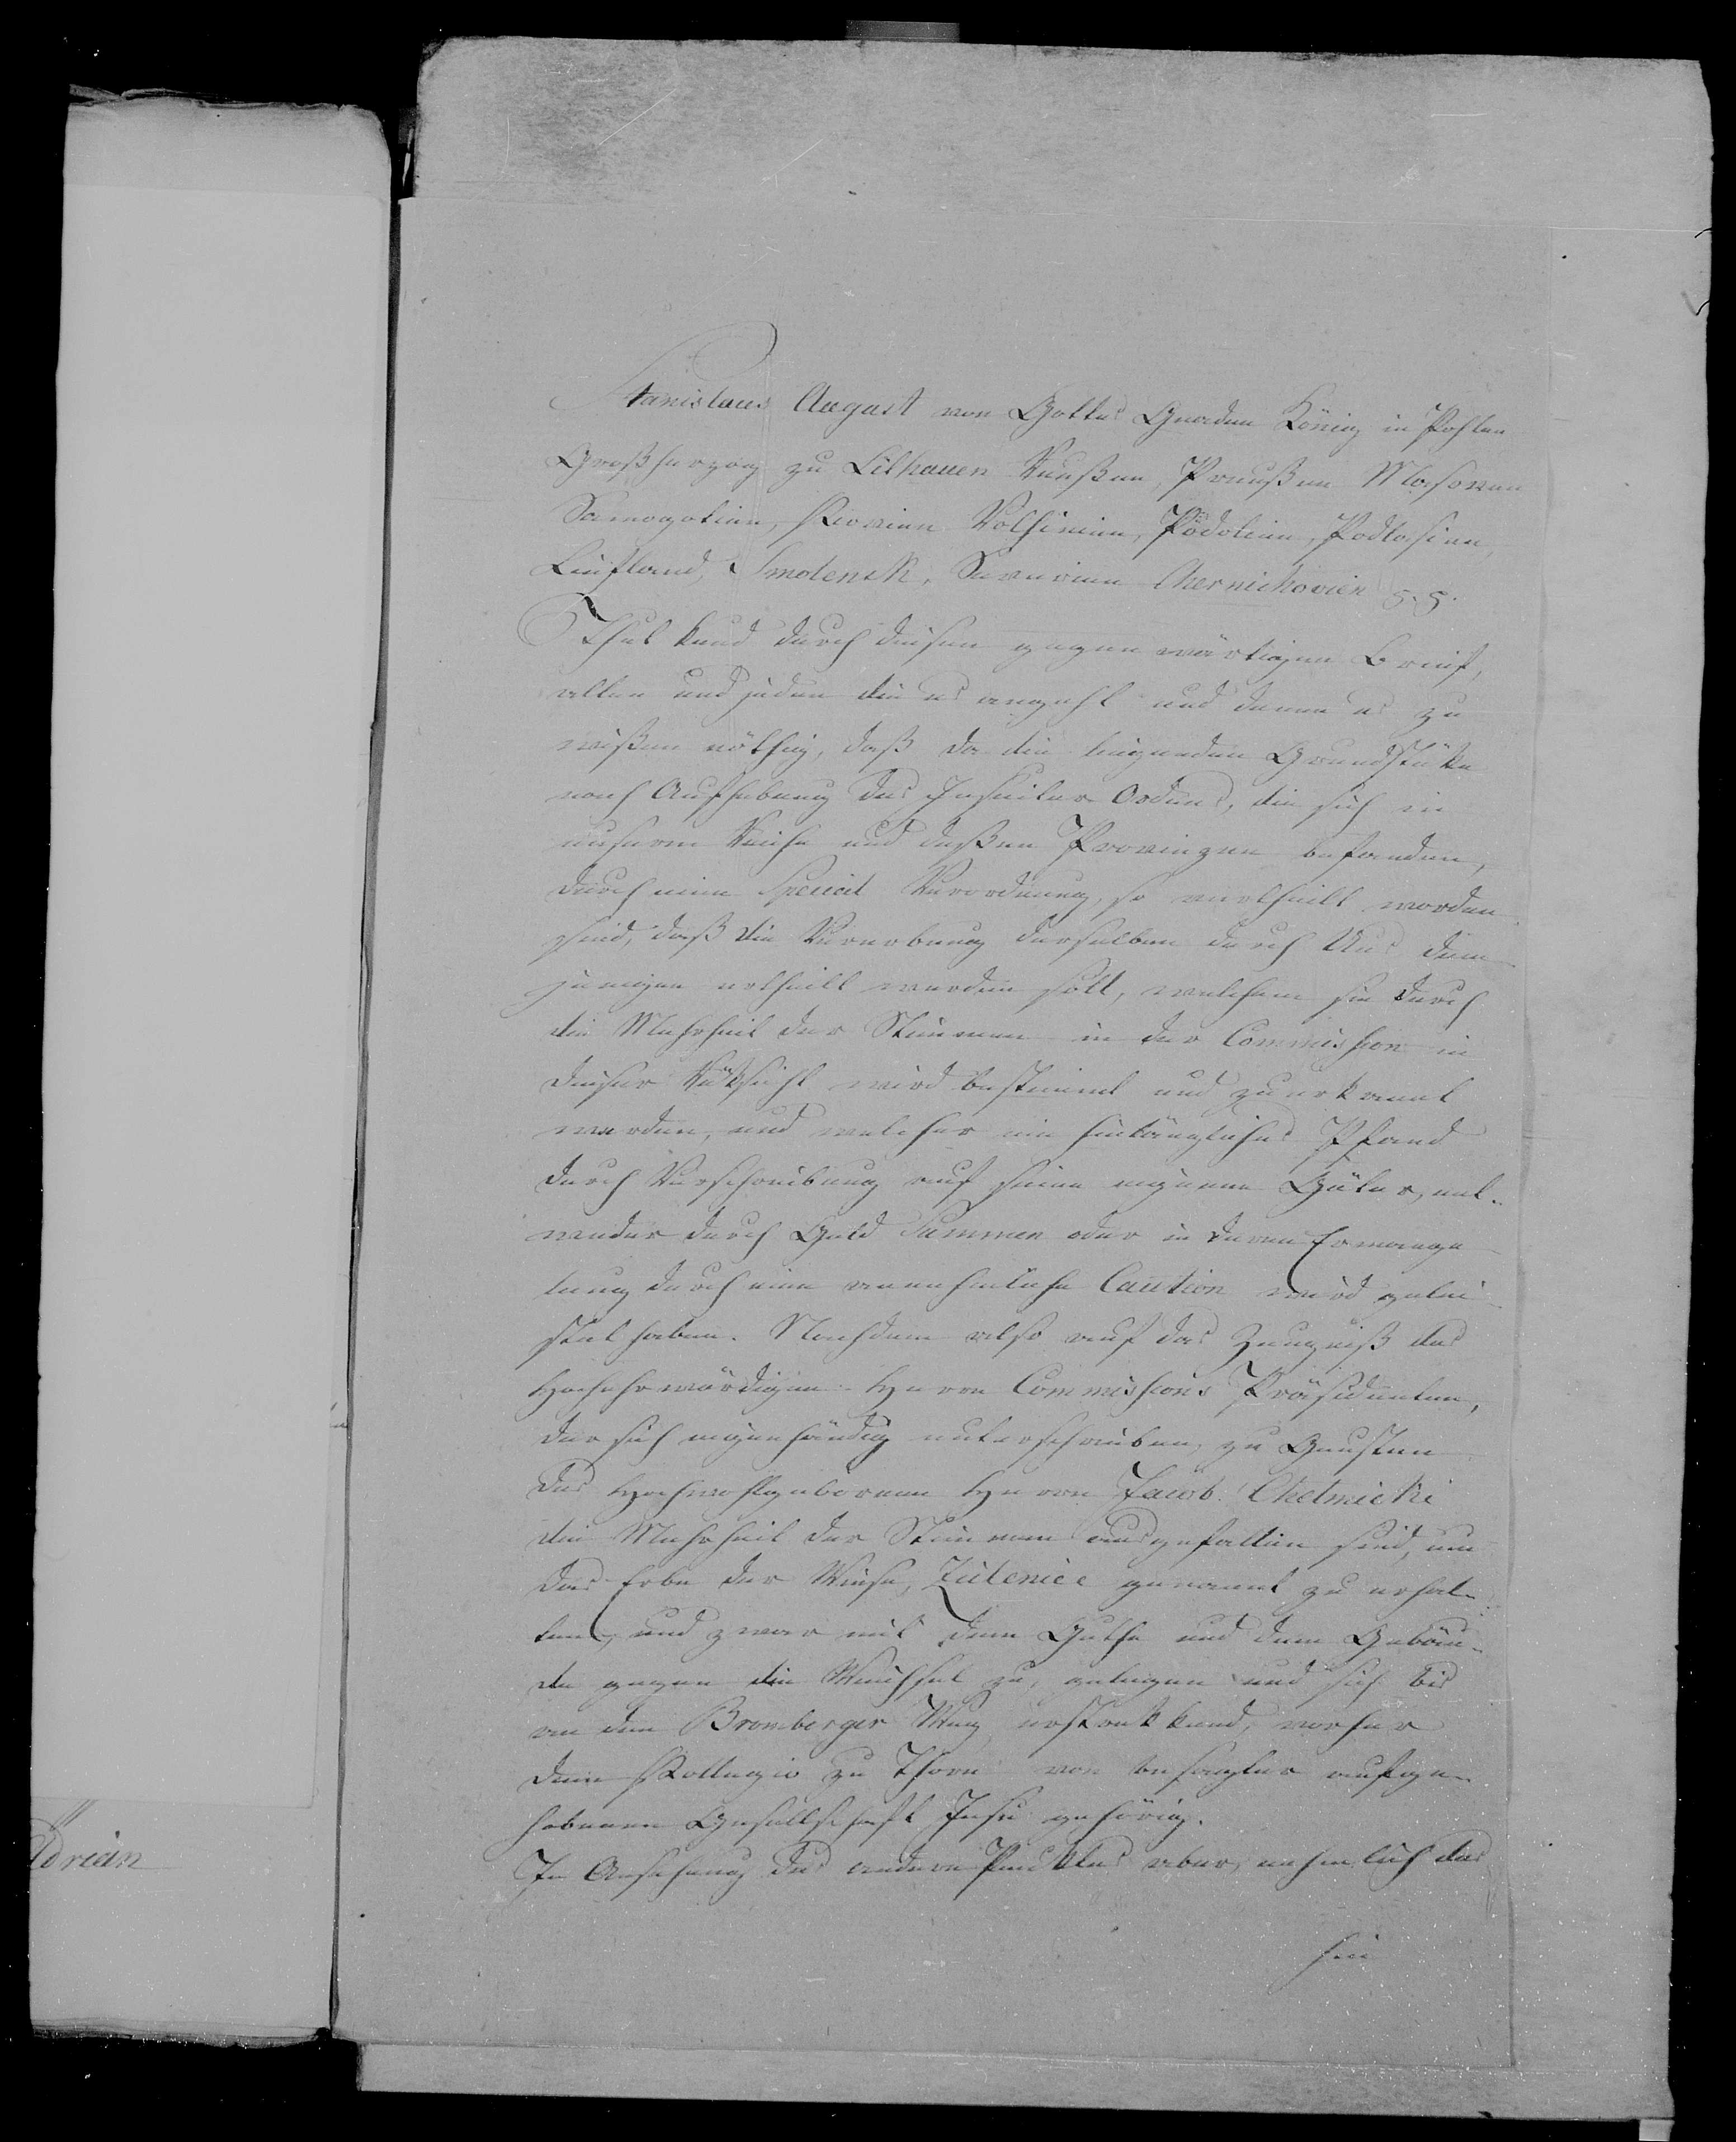 Stanislaus August von Gottes Gnaden König in Pohlen
Großherzog zu Lithauen Reußen, Preußen Masovien
Samogitien, Kiovien Volhinien, Podolien, Podlasien,
Liefland, Smolensk, Severien Chernichovien
Thut kund durch diesen gegenwärtigen Brief,
allen und jeden die es angeht und denen es zu
wißen nöthig, daß da die liegenden Grundstüke
nach Aufhebung des Jesuiter Ordens, die sich in
unserm Reiche und deßen Provinzen befanden,
durch eine Special Verordnung, so vertheilt worden
sind, daß die Vererbung derselben durch Uns dem-
jenigen ertheilt werden soll, welchem sie durch
die Mehrheit der Stimmen in der Commission in
dieser Rüksicht wird bestimmt und zuerkannt
werden, und welcher ein hinlängliches Pfand
durch Verschreibung auf seine eigenen Güter, ent-
weder durch Geld Summen oder in deren Ermange-
lung durch eine annehmliche Caution wird gelei-
stet haben. Nachdem also auf das Zeugniß des
Hochehrwürdigen Herrn Commissions Präsidenten,
der sich eigenhändig unterschrieben, zu Gunsten
des Hochwohlgebornen Herrn Jacob Chelmicki
die Mehrheit der Stimmen ausgefallen sind, um
das Erbe der Wiese, Zulenice genannt zu erhal-
ten, und zwar mit dem Guthe und dem Gebäu-
de gegen die Weichsel zu, gelegen und sich bis
an den Bromberger Weg erstrekkend, vorher
dem Kollegio zu Thorn von besagter aufge-
hobenen Gesellschaft Jesu gehörig.
In Ansehung des andern Punktes aber, nehmlich des
hin
drian